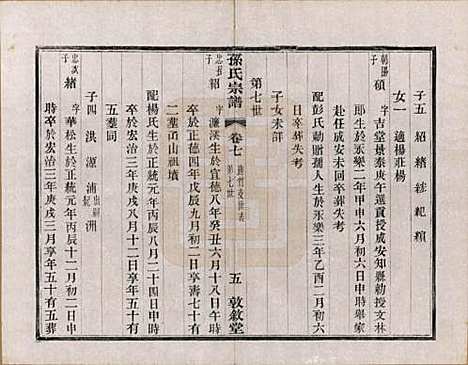 子五 紹 緒 綋 紀 纘
女一 適楊莊楊
朝陽
子 碩 字吉堂景泰庚午選貢授成安知縣勅授文林
郎生於永樂二年甲申六月初六日午時舉家
赴任成安未回卒葬失考
配彭氏勅贈孺人生於永樂三年乙酉二月初六
日卒葬失考
子女未詳
第七世
孫氏宗譜
卷七
第七世
五 敦敘堂
忠張
子 紹 字濂溪生於宣德八年癸丑六月十八日午時
卒於正德四年戊辰九月初二日享壽七十有
二葬甬山祖墳
配楊氏生於正統元年丙辰八月二十四日申時
卒於宏治三年庚戌八月十二日享年五十有
五葬同
子四 洪 源 浦 出嗣紀 洲
忠誠
子 緒 字華松生於正統元年丙辰十二月初二日申
時卒於宏治三年庚戌三月享年五十有五葬